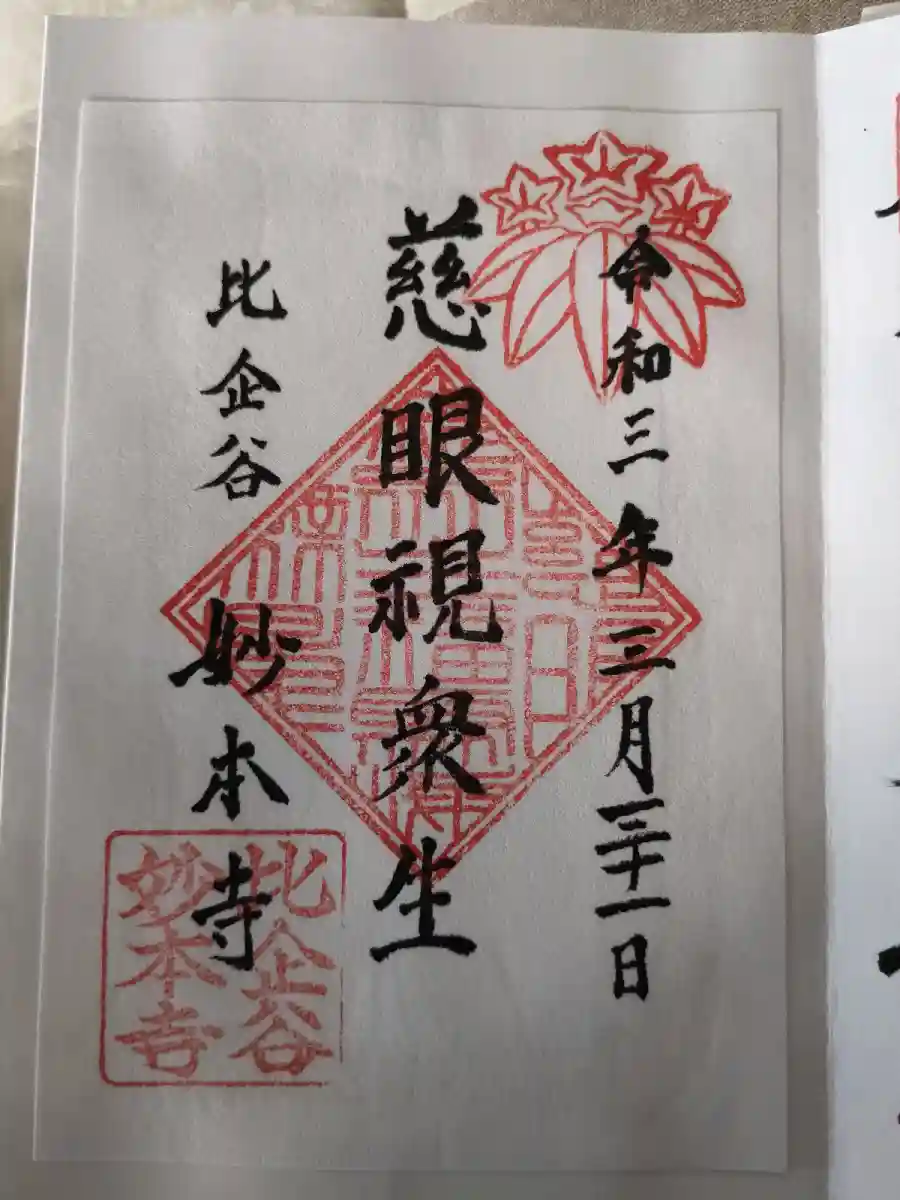 令和三年三月三十一日
慈眼視衆生
比企谷妙本寺
比企谷
妙本寺